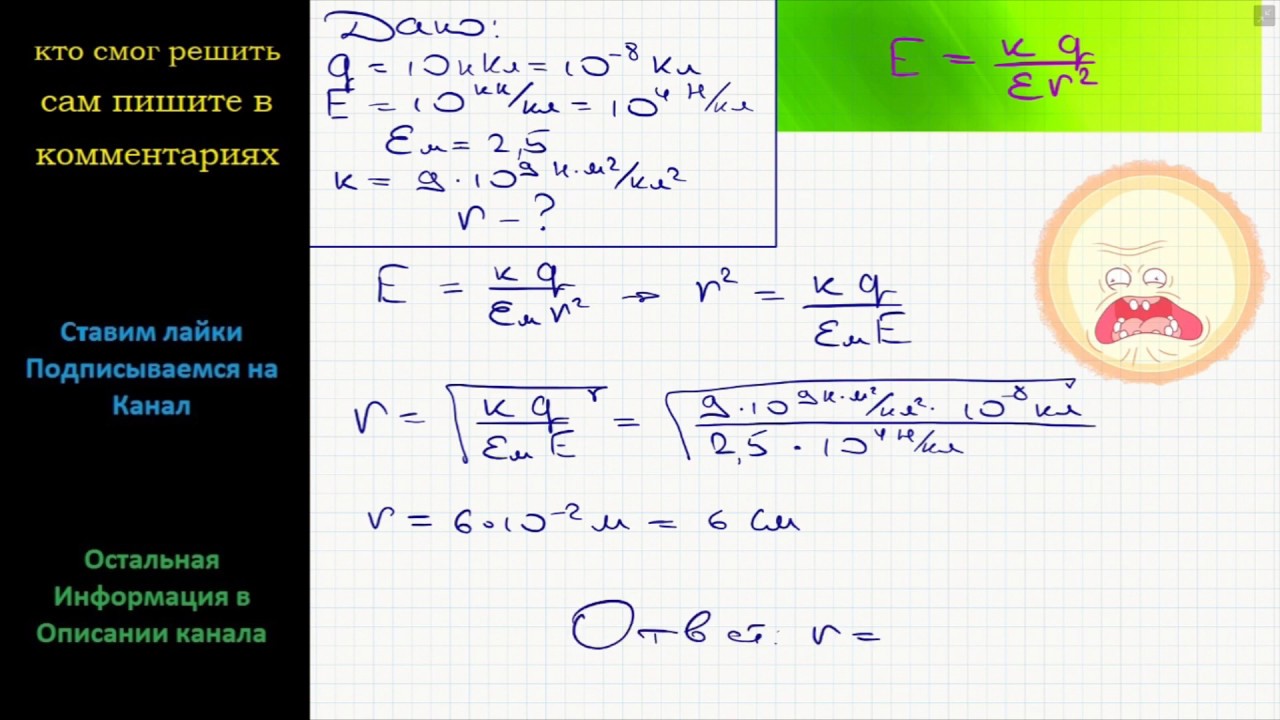 кто смог решить
сам пишите в
комментариях
Ставим лайки
Подписываемся на
Канал
Остальная
Информация в
Описании канала
Дано:
q = 10 нКл = 10⁻⁸ Кл
E = 10 кН/Кл = 10⁴ Н/Кл
εм = 2,5
к = 9·10⁹ Н·м²/Кл²
r – ?
E = к q / εr²
E = к q / εм r² → r² = к q / εм E
r = √(к q / εм E) = √(9·10⁹ Н·м²/Кл² · 10⁻⁸ Кл / 2,5 · 10⁴ Н/Кл)
r = 6·10⁻² м = 6 см
Ответ: r =